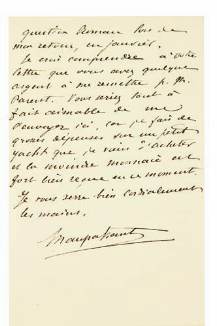 question Roman lors de
mon retour, en janvier.
Je crois comprendre à votre
lettre que vous avez quelque
argent à me remettre p. Mr
Parent. Vous seriez tout à
fait aimable de me
l'envoyer ici, car je fais de
grosses dépenses sur un petit
yacht que je viens d'acheter
et la moindre monnaie est
fort bien reçue en ce moment.
Je vous serre bien cordialement
les mains.
Maupassant